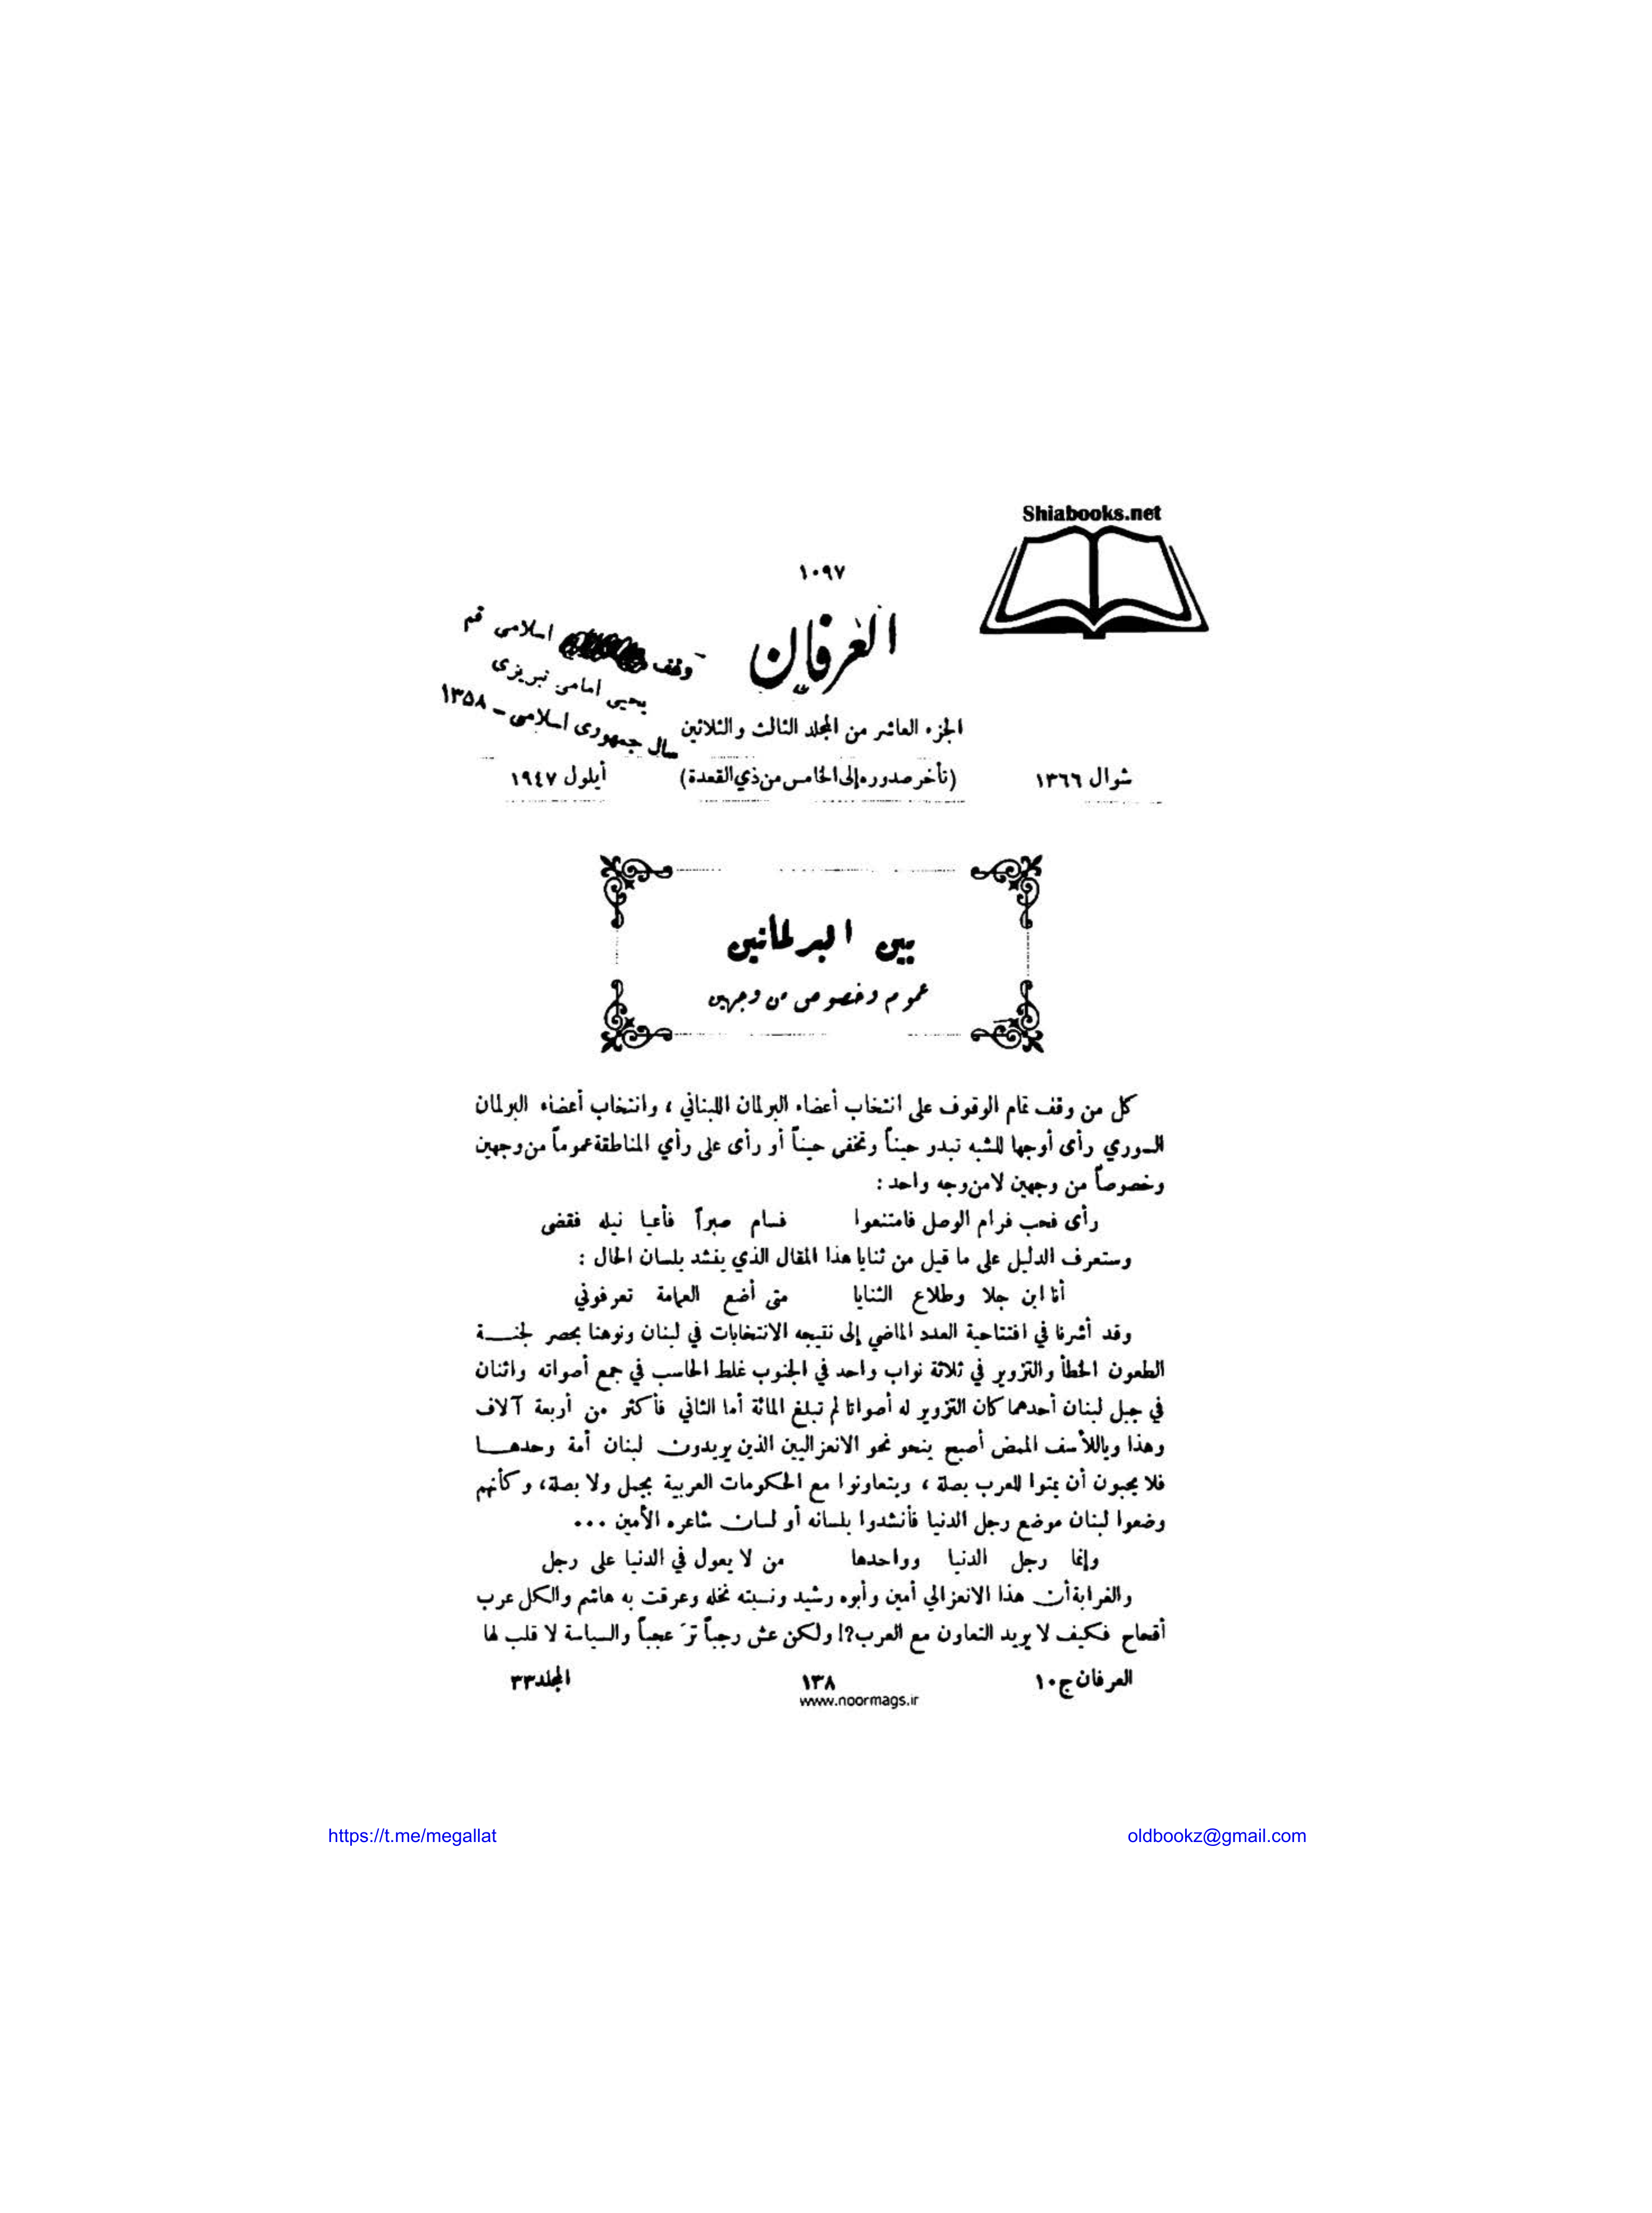 Shiabooks.net
١٠٩٧
العرفان
وقف اسلامى قم
يحيى امامى تبريزى
سال جمهورى اسلامى - ١٣٥٨
الجزء العاشر من المجلد الثالث والثلاثين
شوال ١٣٦٦ (تأخر صدوره إلى الخامس من ذي القعدة) أيلول ١٩٤٧
بين البرلمانين
عموم وخصوص من وجهين
كل من وقف تمام الوقوف على انتخاب أعضاء البرلمان اللبناني ، وانتخاب أعضاء البرلمان
السوري رأى أوجها للشبه تبدو حيناً وتخفى حيناً أو رأى على رأي المناطقة عموماً من وجهين
وخصوصاً من وجهين لا من وجه واحد :
رأى فحب فرام الوصل فامتنعوا فسام صبراً فأعيا نيله فقضى
وستعرف الدليل على ما قيل من ثنايا هذا المقال الذي ينشد بلسان الحال :
أنا ابن جلا وطلاع الثنايا متى أضع العمامة تعرفوني
وقد أشرنا في افتتاحية العدد الماضي إلى نتيجه الانتخابات في لبنان ونوهنا بحصر لجنـــة
الطعون الخطأ والتزوير في ثلاثة نواب واحد في الجنوب غلط الحاسب في جمع أصواته واثنان
في جبل لبنان أحدهما كان التزوير له أصواتا لم تبلغ المائة أما الثاني فأكثر من أربعة آلاف
وهذا وياللأسف الممض أصبح ينحو نحو الانعزاليين الذين يريدون لبنان أمة وحدهـــا
فلا يحبون أن يمتوا للعرب بصلة ، ويتعاونوا مع الحكومات العربية بجمل ولا بصلة، وكأنهم
وضعوا لبنان موضع رجل الدنيا فأنشدوا بلسانه أو لسان شاعره الأمين ...
وإنما رجل الدنيا وواحدها من لا يعول في الدنيا على رجل
والغرابة أن هذا الانعزالي أمين وأبوه رشيد ونسبته نخله وعرقت به هاشم والكل عرب
أقحاح فكيف لا يريد التعاون مع العرب؟! ولكن عش رجباً ترَ عجباً والسياسة لا قلب لها
العرفان ج١٠ ١٣٨ المجلد٣٣
www.noormags.ir
https://t.me/megallat oldbookz@gmail.com